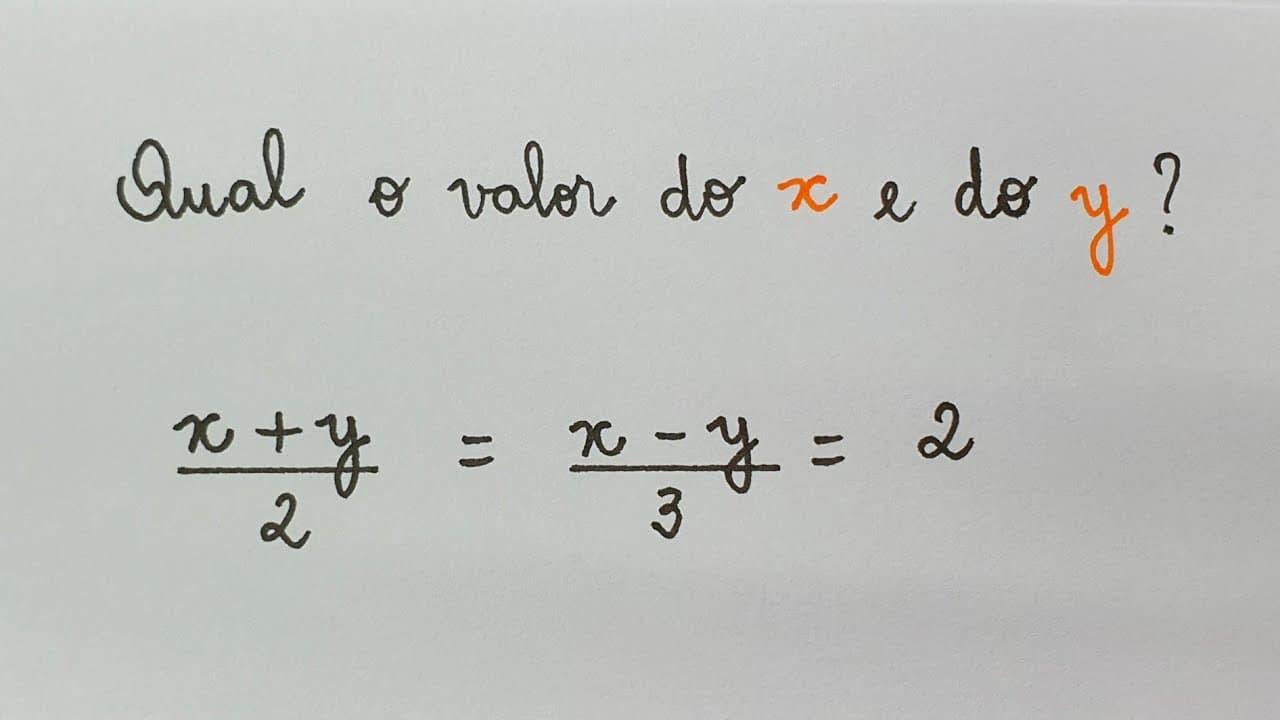 Qual o valor do x e do y?
x + y / 2 = x - y / 3 = 2